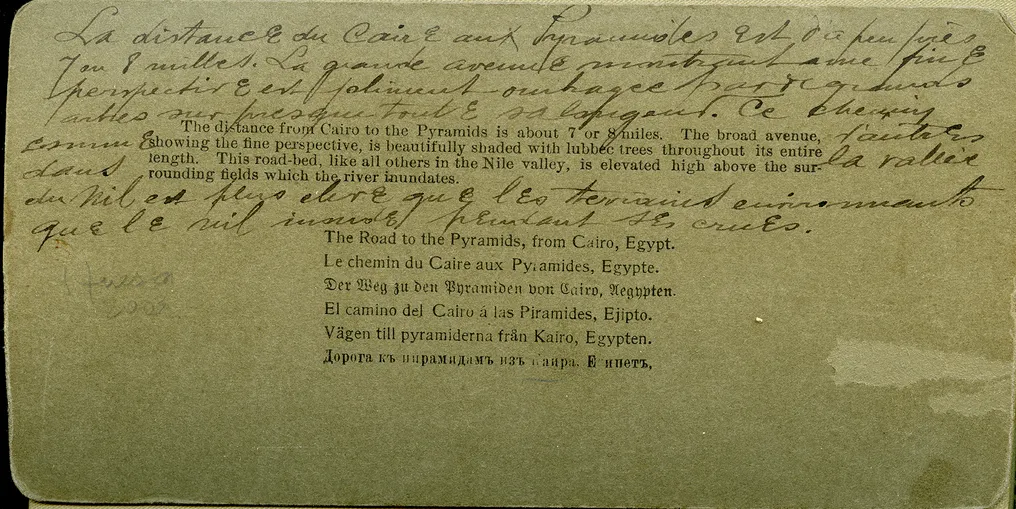 La distance du Caire aux Pyramides est d'à peu près
7 ou 8 milles. La grande avenue montrant une fine
perspective est joliment ombragée par de grands
arbres sur presque toute sa longueur. Ce chemin
The distance from Cairo to the Pyramids is about 7 or 8 miles. The broad avenue,
showing the fine perspective, is beautifully shaded with lubbec trees throughout its entire
length. This road-bed, like all others in the Nile valley, is elevated high above the sur-
rounding fields which the river inundates.
comme d'autres
dans la vallée
du Nil est plus élevé que les terrains environnants
que le nil inonde pendant ses crues.
The Road to the Pyramids, from Cairo, Egypt.
Le chemin du Caire aux Pyramides, Egypte.
Der Weg zu den Pyramiden von Cairo, Aegypten.
El camino del Cairo á las Piramides, Ejipto.
Vägen till pyramiderna från Kairo, Egypten.
Дорога къ пирамидамъ изъ Каира. Египетъ,